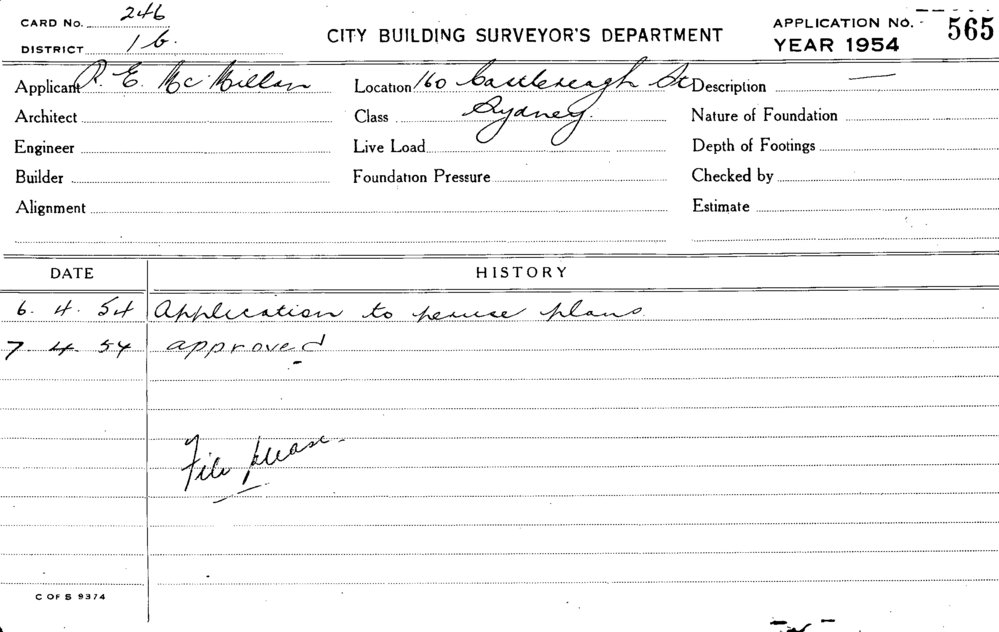 CARD No. 246
DISTRICT 1b.
CITY BUILDING SURVEYOR'S DEPARTMENT
APPLICATION No. - 565
YEAR 1954
Applicant R. E. McMillan Location 160 Castlereagh St Description —
Architect Class Sydney. Nature of Foundation
Engineer Live Load Depth of Footings
Builder Foundation Pressure Checked by
Alignment Estimate
DATE HISTORY
6. 4. 54 Application to peruse plans
7. 4. 54 approved
File please
C OF S 9374